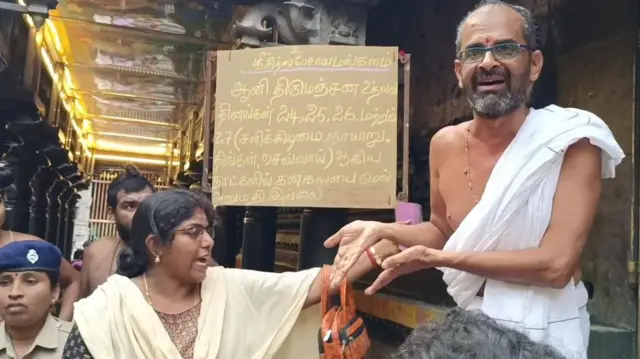 ஆனி திருமஞ்சன உற்சவ
தினங்கள் 24, 25, 26 மற்றும்
27 (சனிக்கிழமை, ஞாயிறு,
திங்கள், செவ்வாய்) ஆகிய
நாட்களில் கனகசபை மேல்
அனுமதி இல்லை